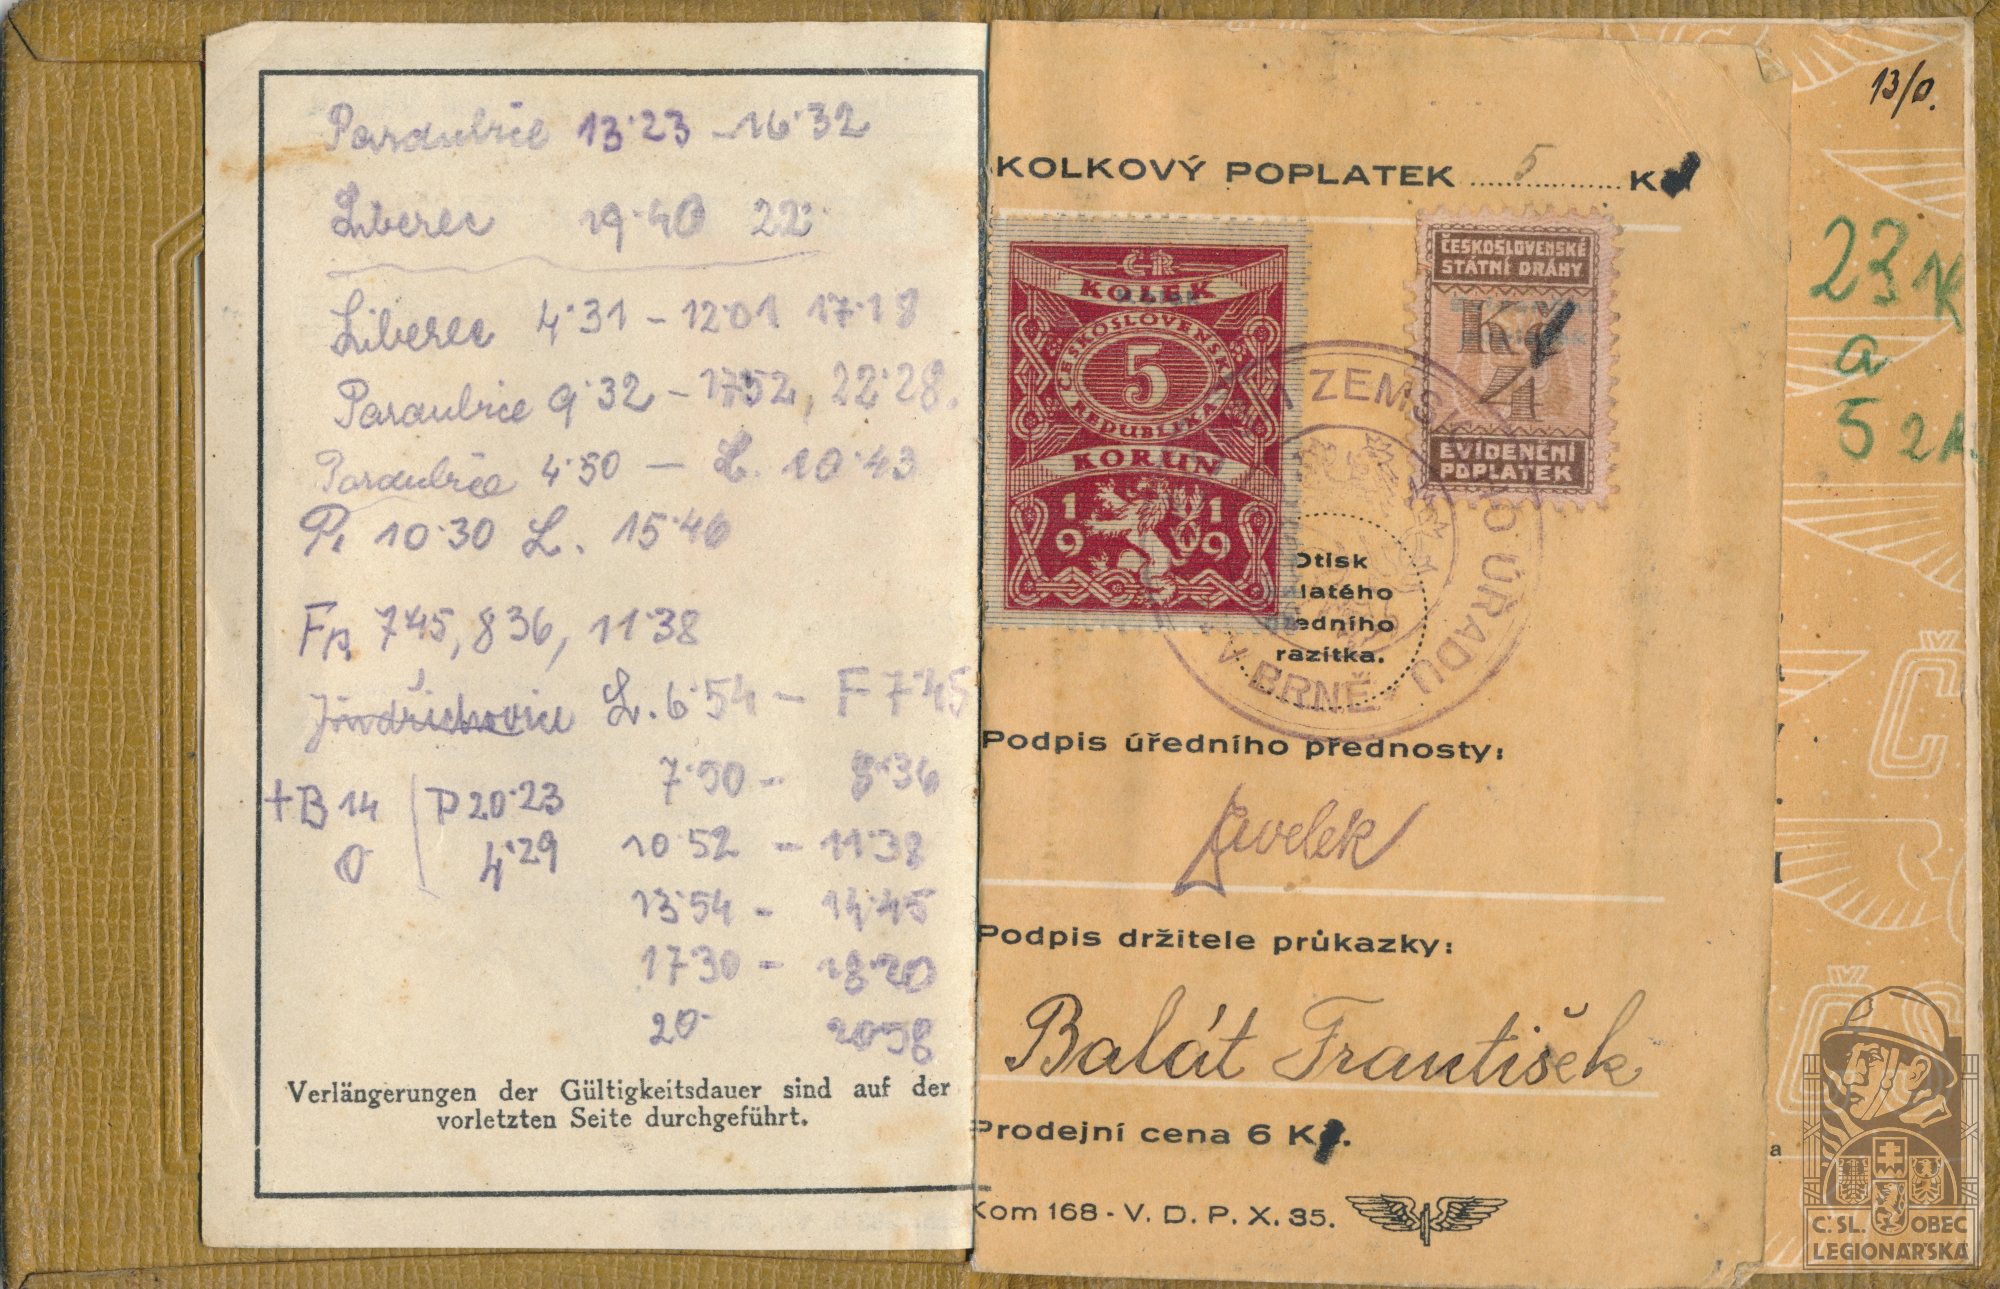 Pardubice 13·23 – 16·32
Liberec 19·40 22·
Liberec 4·31 – 12·01 17·18
Pardubice 9·32 – 17·52, 22·28.
Pardubice 4·50 – L. 10·43
P. 10·30 L. 15·46
Fp. 7·45, 8 36, 11·38
Jindřichovice L. 6·54 – F 7·45
7·50 – 8·36
+B 14 P 20·23
0 4·29
10·52 – 11·38
13·54 – 14·45
17·30 – 18·20
20· 20·58
Verlängerungen der Gültigkeitsdauer sind auf der
vorletzten Seite durchgeführt.
KOLKOVÝ POPLATEK 5 K
ČR
KOLEK
ČESKOSLOVENSKÁ
5
REPUBLIKA
KORUN
1919
ČESKOSLOVENSKÉ
STÁTNÍ DRÁHY
Kč
4
EVIDENČNÍ
POPLATEK
ZEMSKÉHO ÚŘADU
V BRNĚ
Otisk
razítka.
Podpis úředního přednosty:
Podpis držitele průkazky:
Balát František
Prodejní cena 6 K
Kom 168 - V. D. P. X. 35.
13/0.
23 K
a
5 2
Č
ČS
Č.SL. OBEC
LEGIONÁŘSKÁ